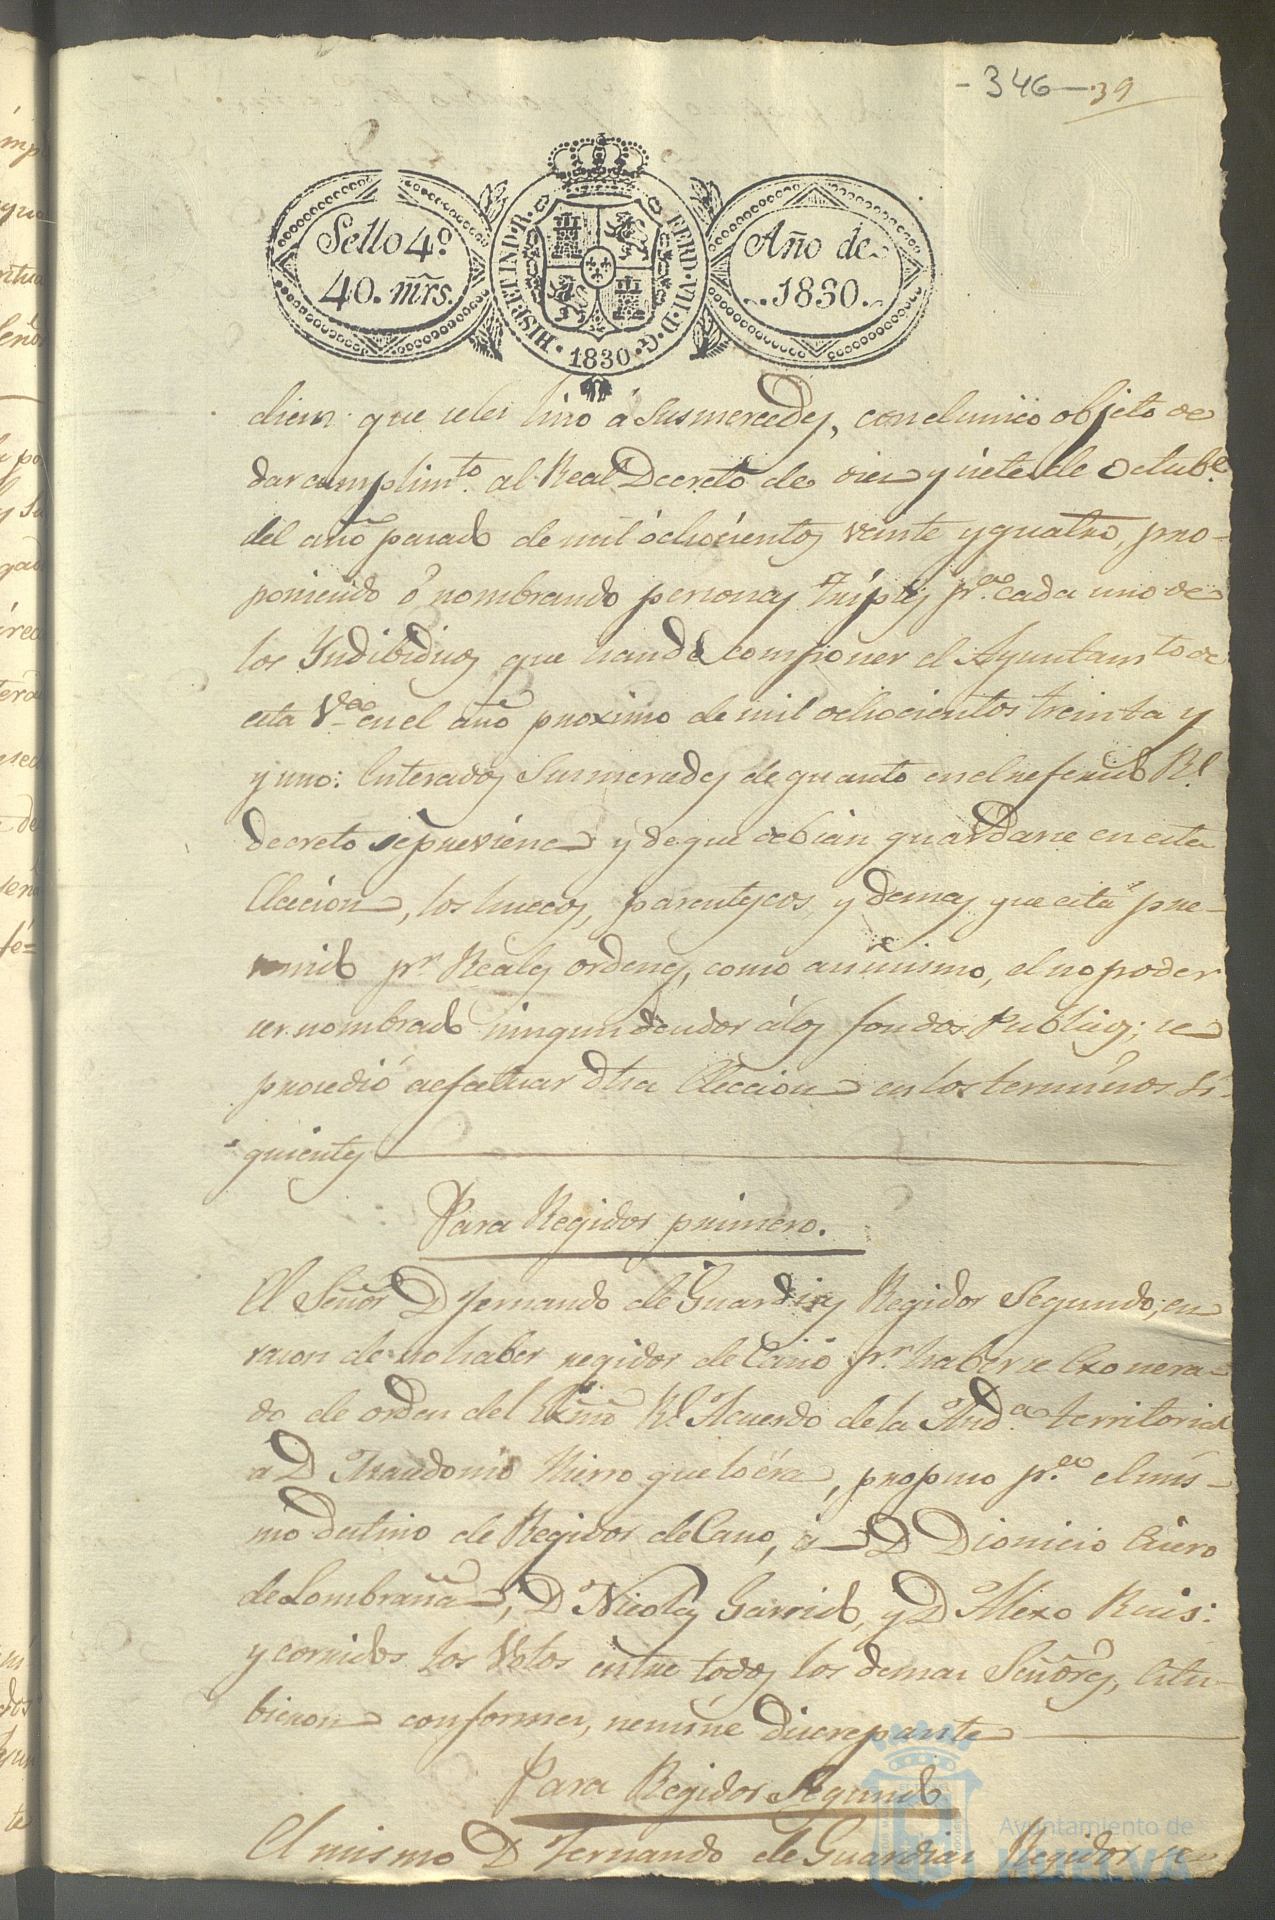 - 346 - 39
Sello 4º.
40. mrs.
HISP. ET IND. R. FERD. VII. D. G.
1830
Año de
1830.
diem que seles hiso á Susmercedes, con el unico objeto de
dar cumplimto. al Real Decreto de dies y siete de Octube.
del año pasado de mil óchocientos veinte y quatro, pro-
poniendo ó nombrando personas triples pa. cada uno de
los Yndibiduos que han de componer el Ayuntamto de
esta Va. en el año proximo de mil ochocientos treinta y
y uno: Enterados Susmercedes de quanto en el referido Rl.
decreto se previene y de que debian guardarse en esta
Eleccion, los huecos, parentescos y demas que está pre-
venido pr. Reales ordenes, como asimismo, el no poder
ser nombrado ningun deudor á los fondos Publicos; se
procedió aefectuar dha Eleccion en los terminos si-
guientes
Para Regidor primero.
El Señor D Fernando de Guardias Regidor Segundo, en
racon de no haber regidor de Cano pr. haberse Exonera-
do de orden del Exmo Rl. Acuerdo de la Auda. territorial
a D Hierro que lo éra, propuso pa. el mis-
mo destino de Regidor de Cano, a D Dionicio
de Lombraña, D Nicolas Garrido, y D Alexo Ruis:
y corridos los Votos entre todos los demas Señores, Estu-
bieron conformes, nemine discrepante
Para Regidor Segundo
El mismo D Fernando de Guardias Regidor se
Ayuntamiento de
HUELVA